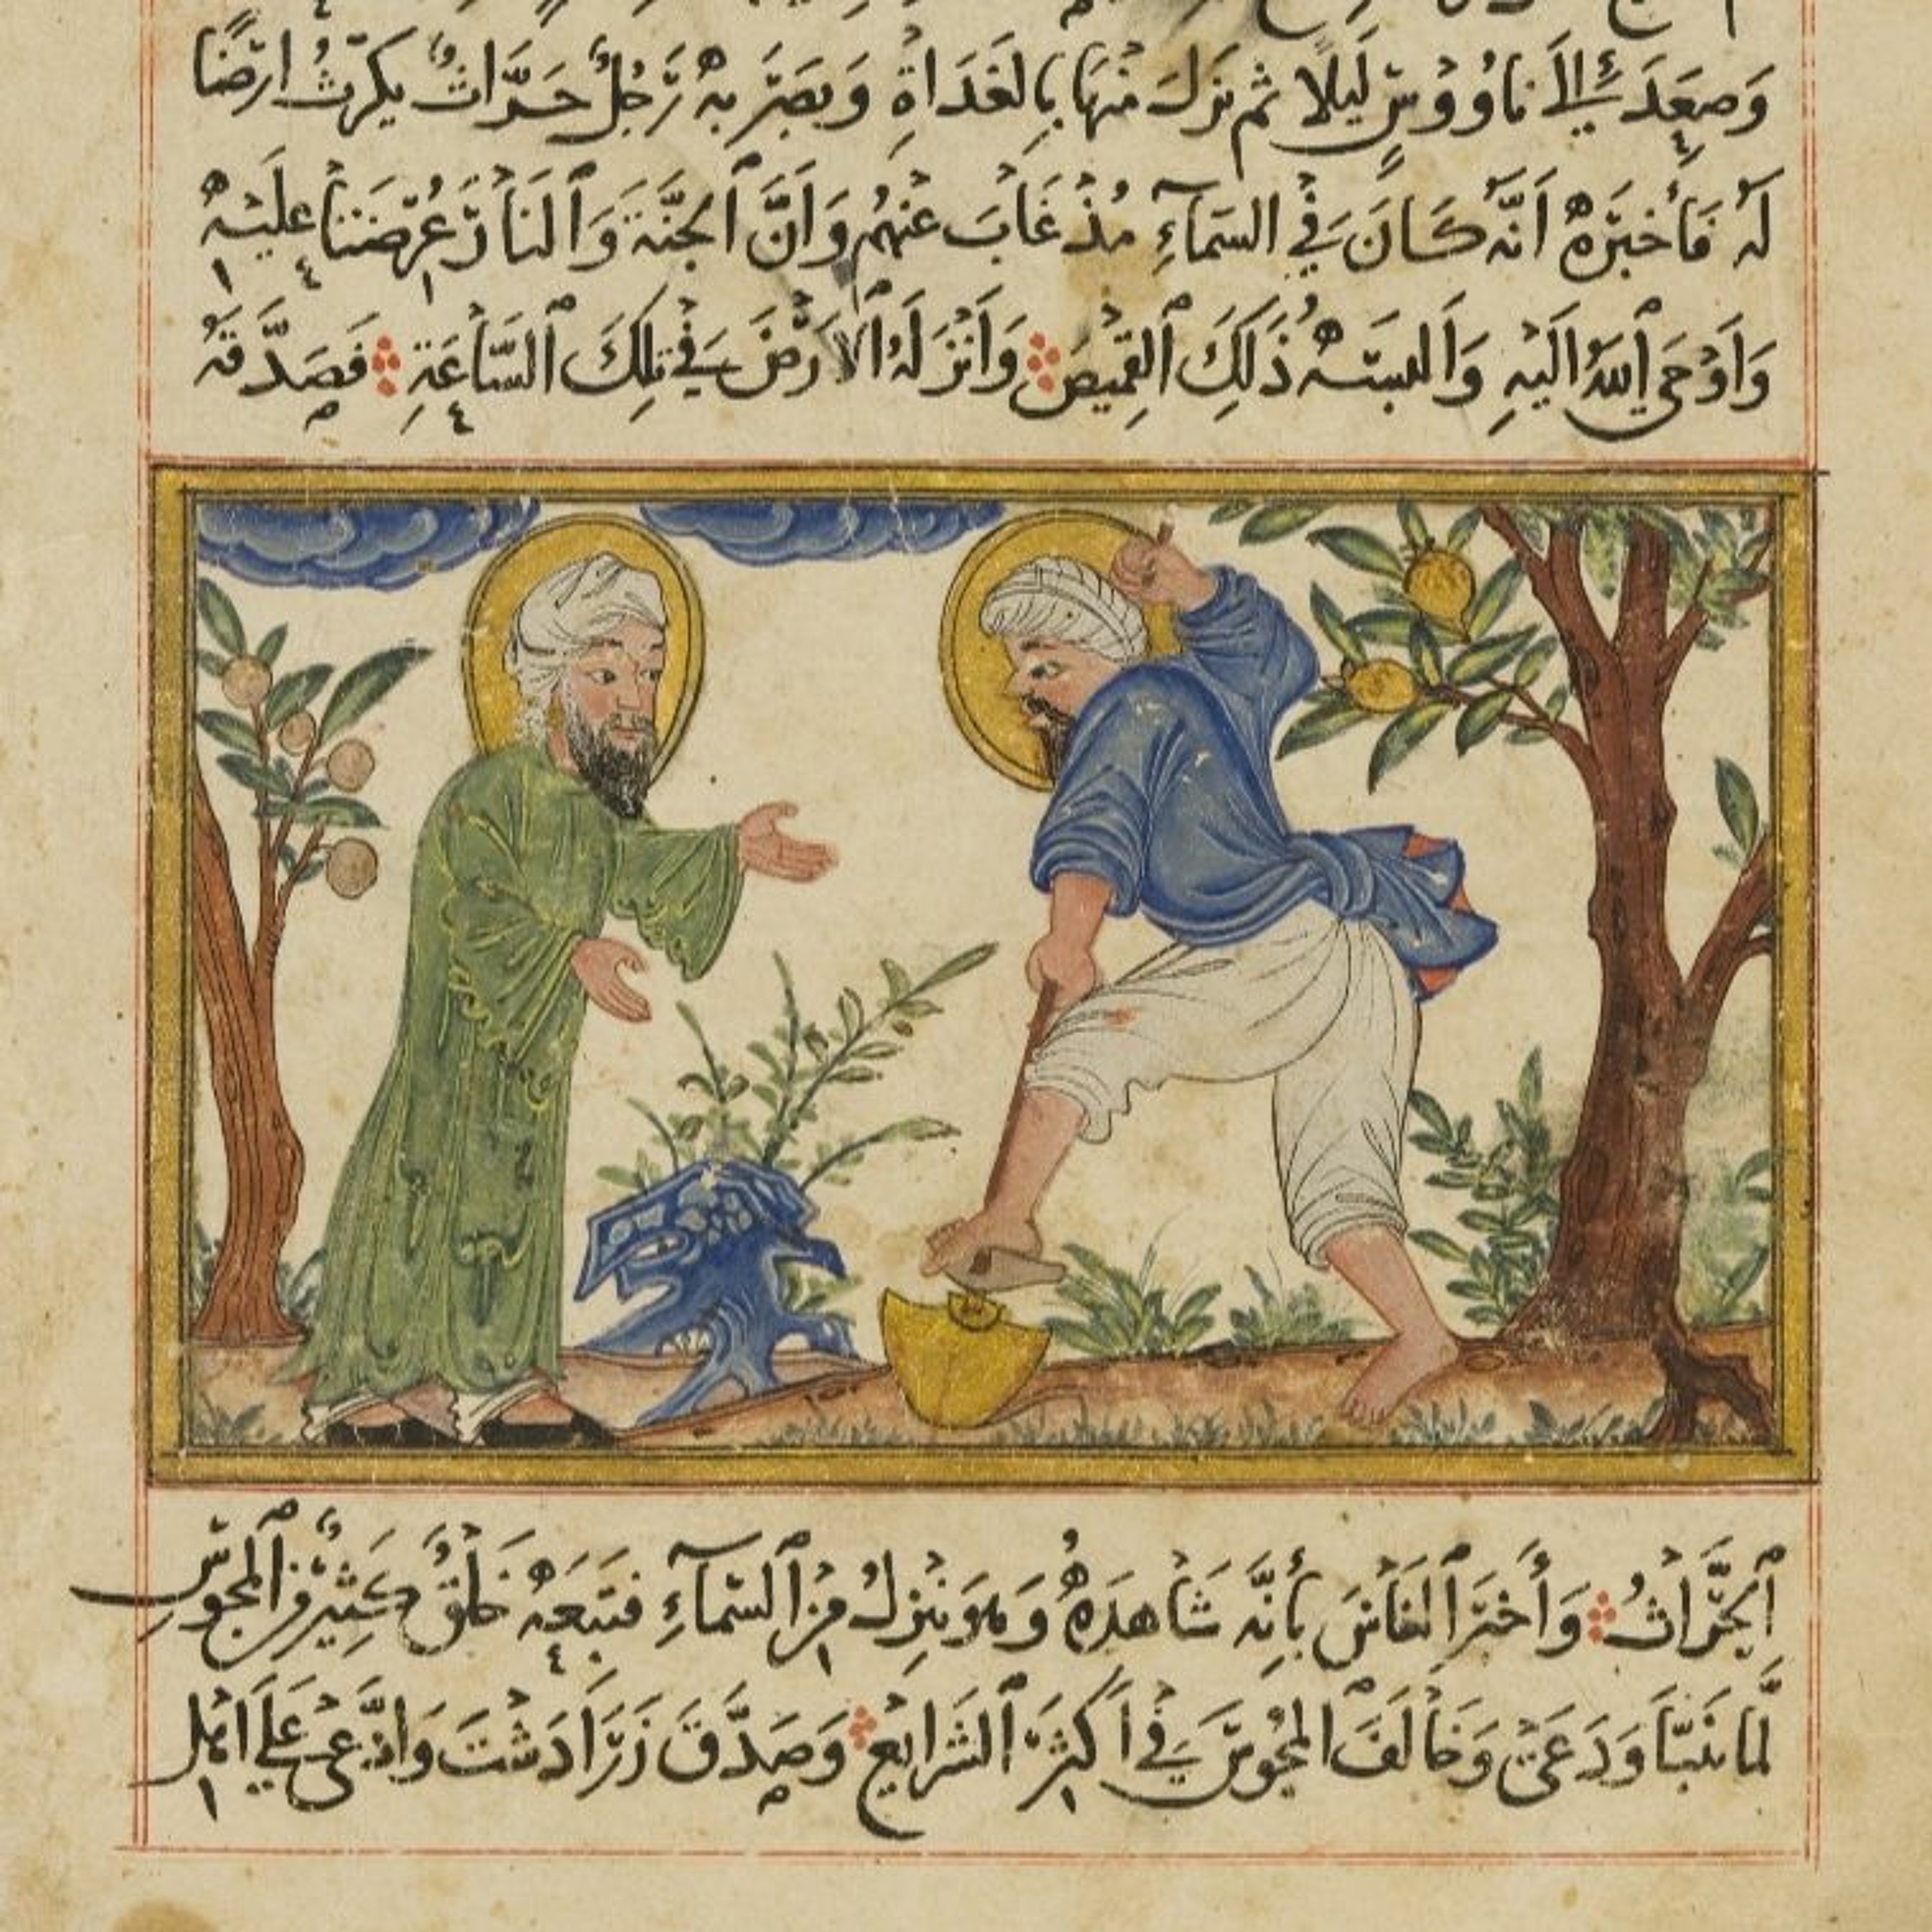 وَصَعِدَ إِلَى نَاوُوسٍ لَيْلًا ثُمَّ نَزَلَ مِنْهَا بِالْغَدَاةِ وَبَصُرَ بِهِ رَجُلٌ حَرَّاثٌ يَكْرُثُ اَرْضًا
لَهُ فَأَخْبَرَهُ اَنَّهُ كَانَ فِي السَّمَآءِ مُذْ غَابَ عَنْهُمْ وَاَنَّ الْجَنَّةَ وَالنَّارَ عُرِضَتَا عَلَيْهِ
وَاَوْحَى اللهُ اِلَيْهِ وَاَلْبَسَهُ ذَلِكَ الْقَمِيصَ وَاَنْزَلَهُ الْاَرْضَ فِي تِلْكَ السَّاعَةِ فَصَدَّقَهُ
الْحَرَّاثُ وَأَخْبَرَ النَّاسَ بِأَنَّهُ شَاهَدَهُ وَهُوَ يَنْزِلُ مِنَ السَّمَآءِ فَتَبِعَهُ خَلْقٌ كَثِيرٌ مِنَ الْمَجُوسِ
لَمَّا تَنَبَّأَ وَدَعَى وَخَالَفَ الْمَجُوسَ فِي اَكْثَرِ الشَّرَايِعِ وَصَدَّقَ زَرَادَشْتَ وَادَّعَى عَلَى اَهْلِ